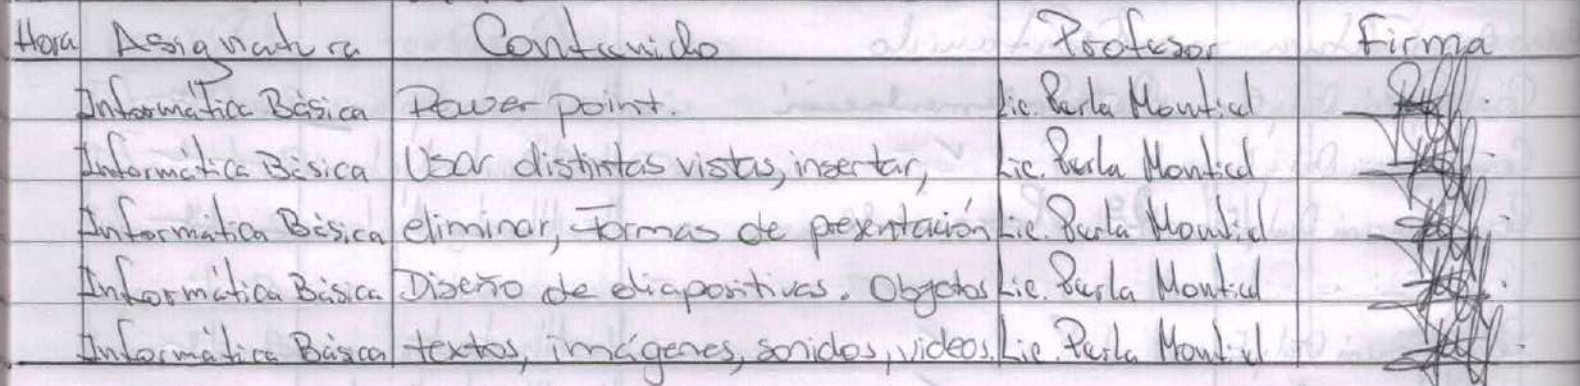 Hora Asignatura Contenido Profesor Firma
Informática Básica Power point. Lic. Perla Montiel
Informática Básica Usar distintas vistas, insertar, Lic. Perla Montiel
Informática Básica eliminar, Formas de presentación Lic. Perla Montiel
Informática Básica Diseño de diapositivas. Objetos Lic. Perla Montiel
Informática Básica textos, imágenes, sonidos, videos. Lic. Perla Montiel